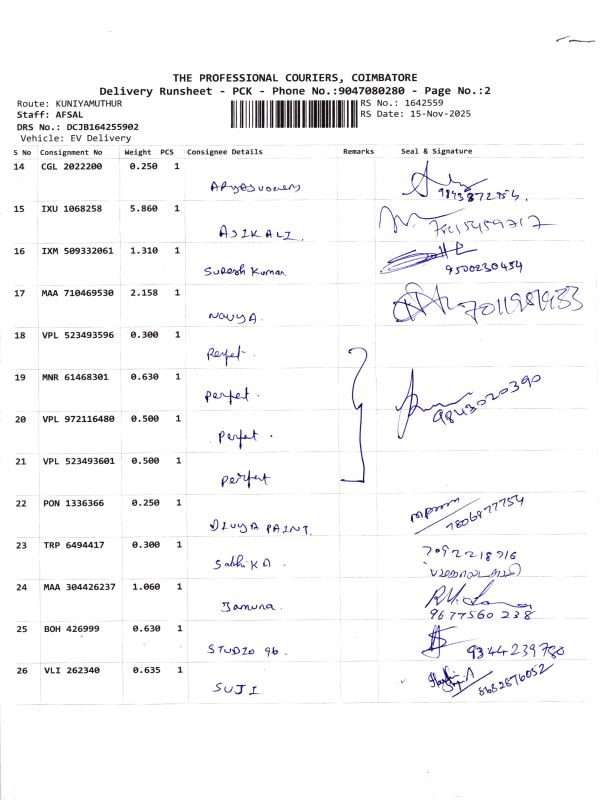 THE PROFESSIONAL COURIERS, COIMBATORE
Delivery Runsheet - PCK - Phone No.:9047080280 - Page No.:2
Route: KUNIYAMUTHUR
RS No.: 1642559
Staff: AFSAL
RS Date: 15-Nov-2025
DRS No.: DCJB164255902
Vehicle: EV Delivery
S No Consignment No Weight PCS Consignee Details Remarks Seal & Signature
14 CGL 2022200 0.250 1
15 IXU 1068258 5.860 1
AJIKALI.
16 IXM 509332061 1.310 1
Suresh Kumar
9500230454
17 MAA 710469530 2.158 1
NAVYA.
7011981933
18 VPL 523493596 0.300 1
Perfet.
19 MNR 61468301 0.630 1
perfet.
9843020390
20 VPL 972116480 0.500 1
perfet.
21 VPL 523493601 0.500 1
perfect
22 PON 1336366 0.250 1
DIVYA PAINT.
7806877754
23 TRP 6494417 0.300 1
7092218916
24 MAA 304426237 1.060 1
Jamuna.
9677560238
25 BOH 426999 0.630 1
STUDIO 96.
9344239780
26 VLI 262340 0.635 1
SUJI
8682876052